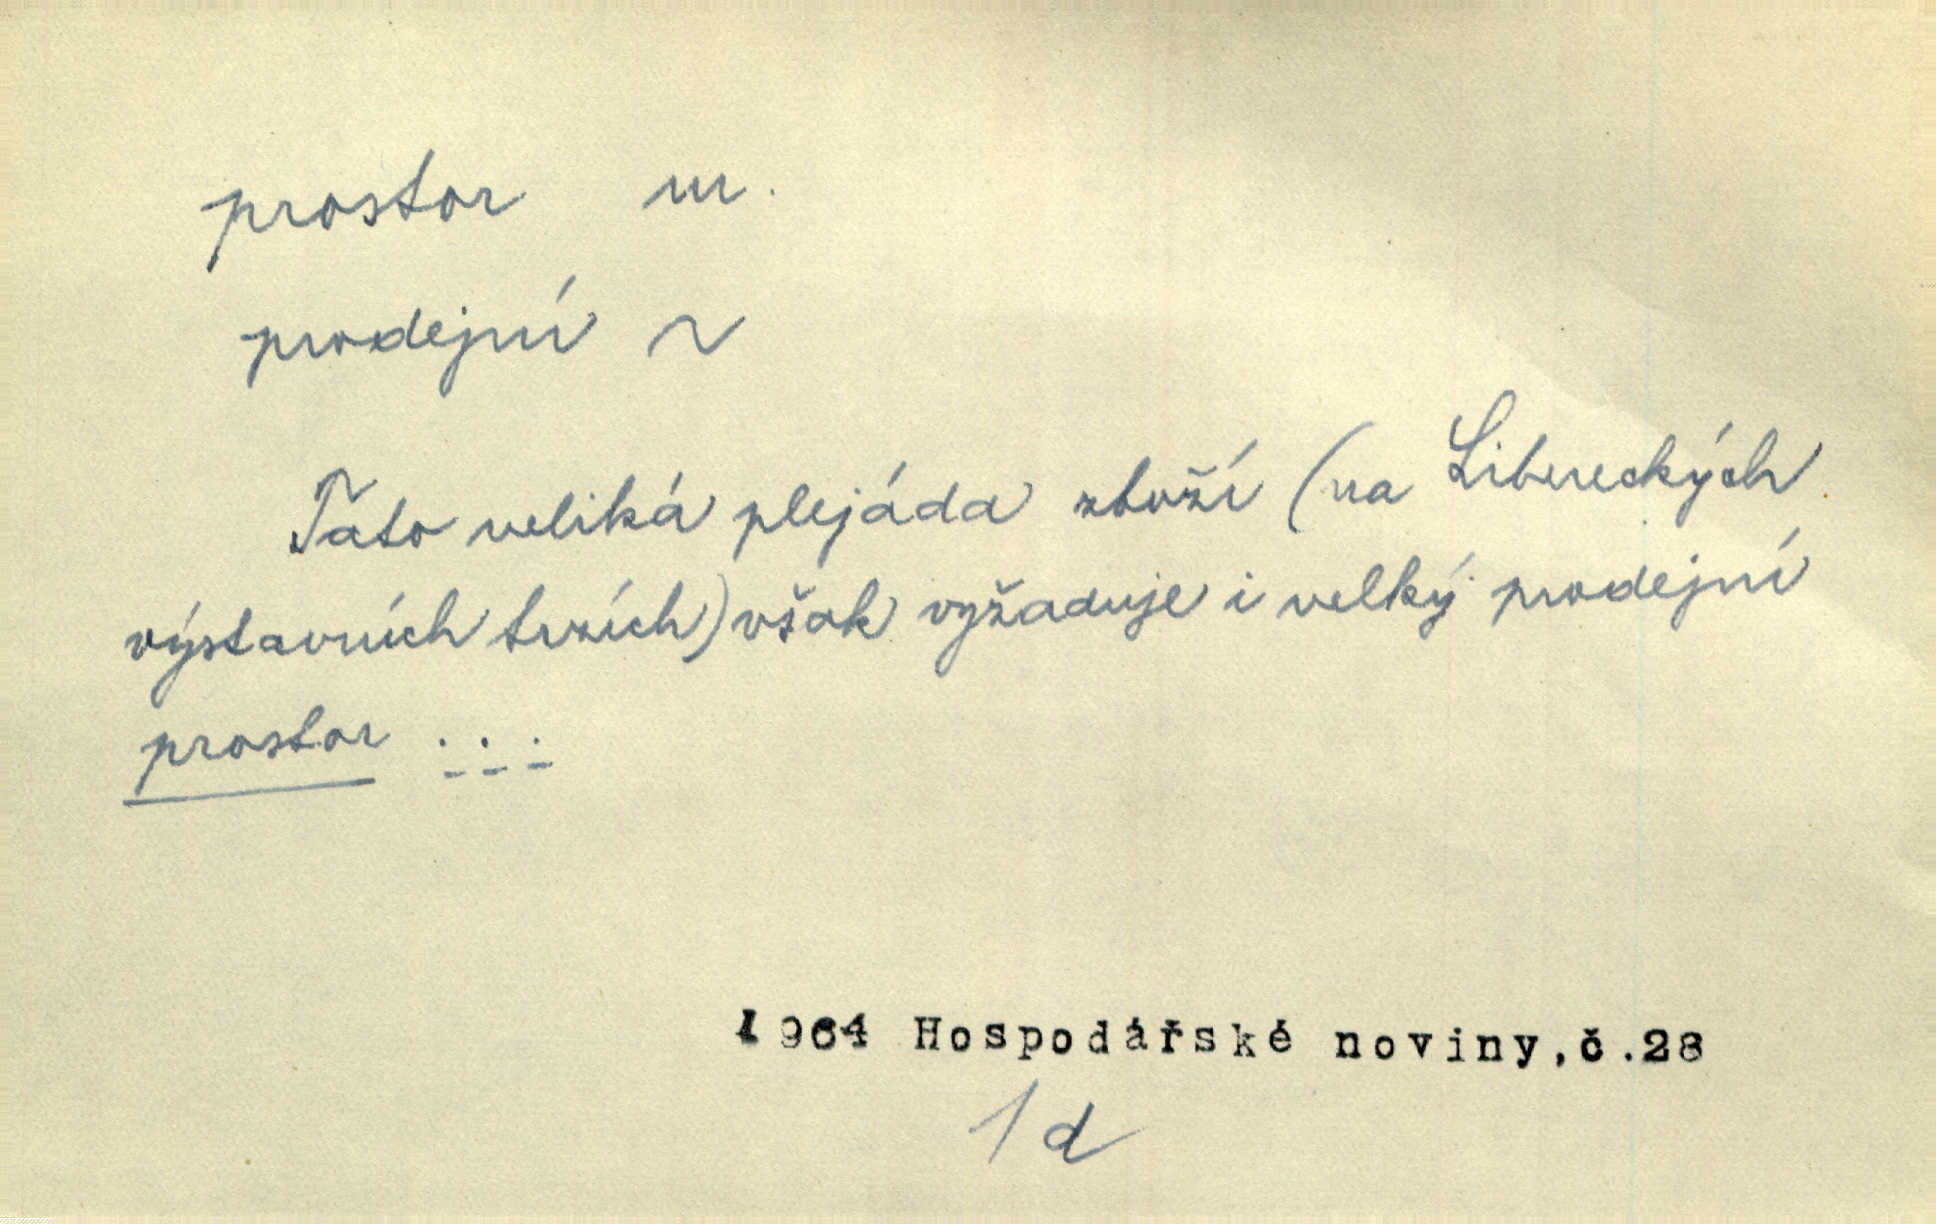 prostor m.
prodejní ~
Tato veliká plejáda zboží (na Libereckých
výstavních trzích) však vyžaduje i velký prodejní
prostor ...
1964 Hospodářské noviny,č.28
1d